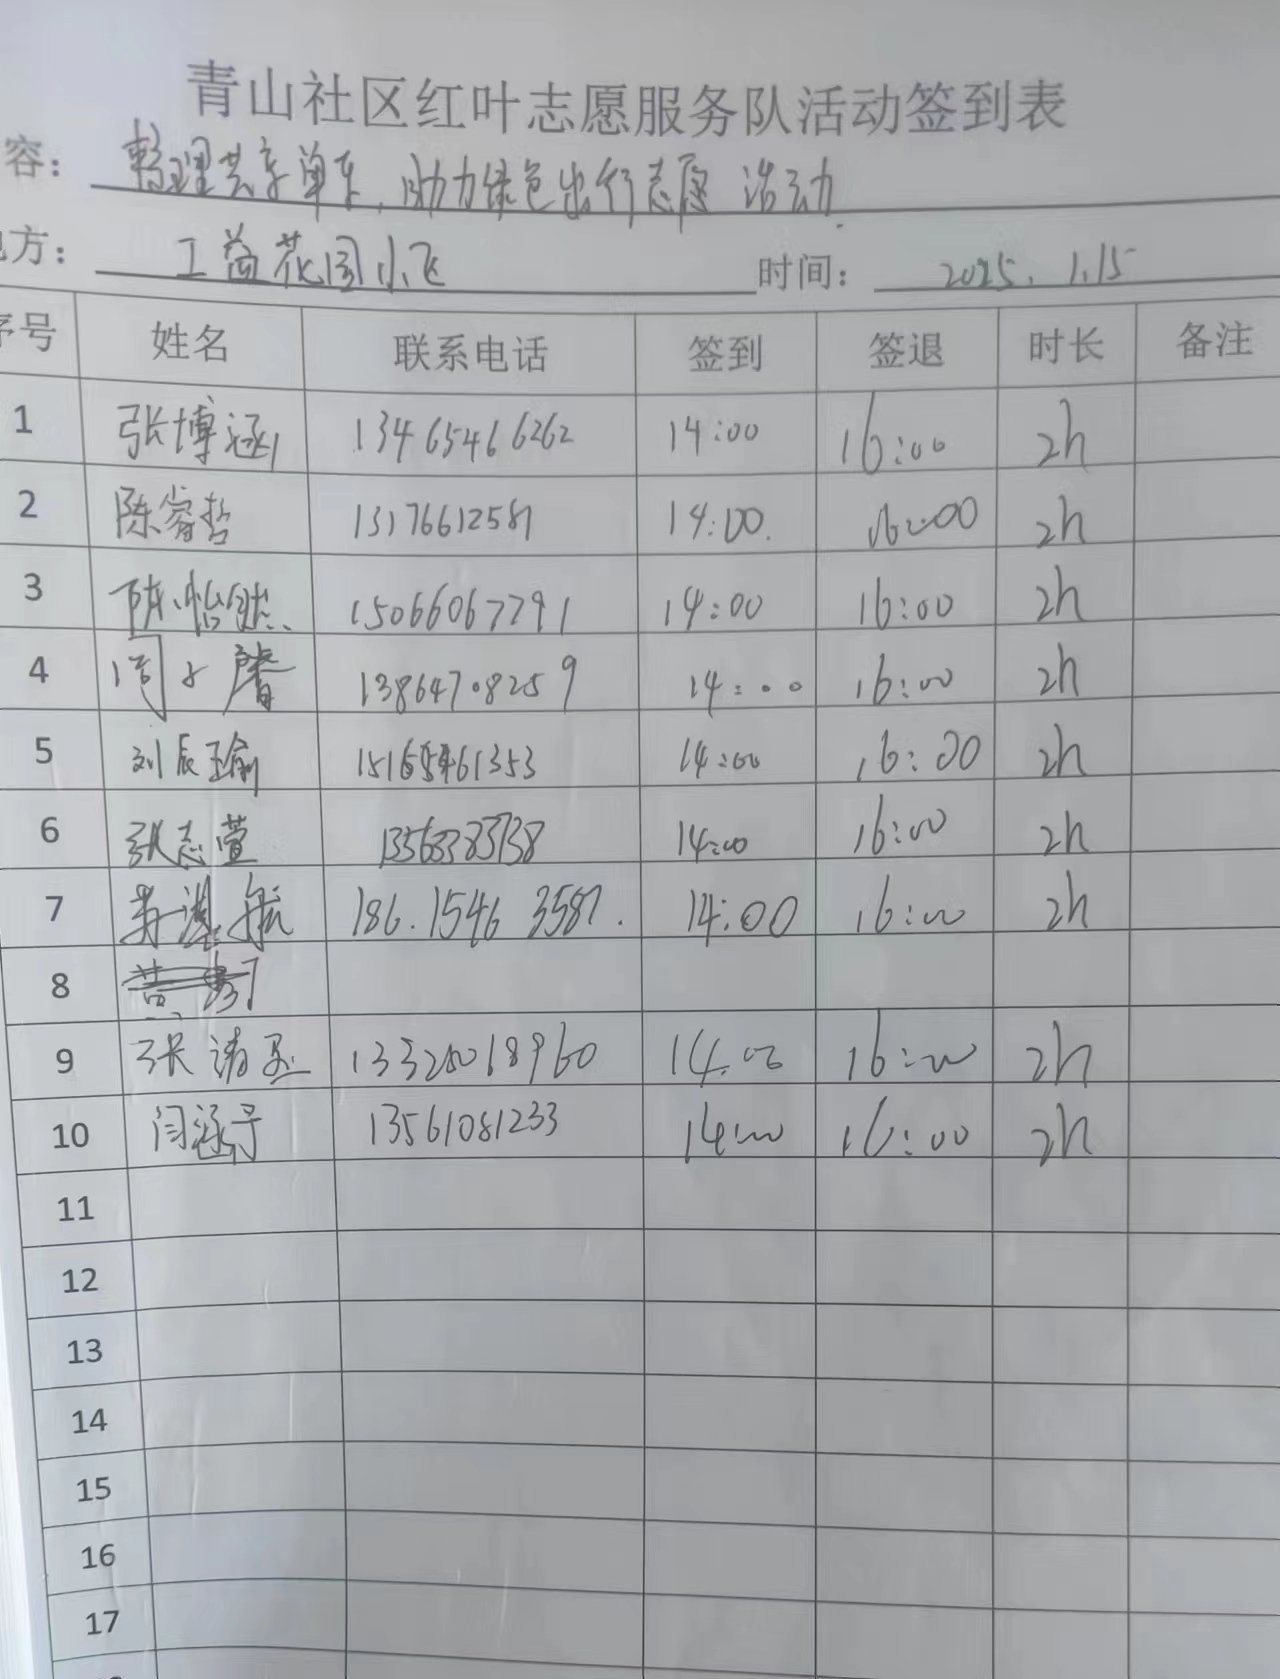 青山社区红叶志愿服务队活动签到表
容： 整理共享单车,助力绿色出行志愿活动.
方： 工益花园小飞 时间： 2025.1.15
序号 姓名 联系电话 签到 签退 时长 备注
1 张博涵 13465466262 14:00 16:00 2h
2 陈睿哲 13176612581 14:00. 16:00 2h
3 陈怡然 15066067791 14:00 16:00 2h
4 馨 13864708259 14:00 16:00 2h
5 刘辰瑜 14:00 16:00 2h
6 张志萱 14:00 16:00 2h
7 航 186.1546 3587. 14:00 16:00 2h
8
9 张 13328018960 14:00 16:00 2h
10 闫涵予 13561081233 14:00 16:00 2h
11
12
13
14
15
16
17